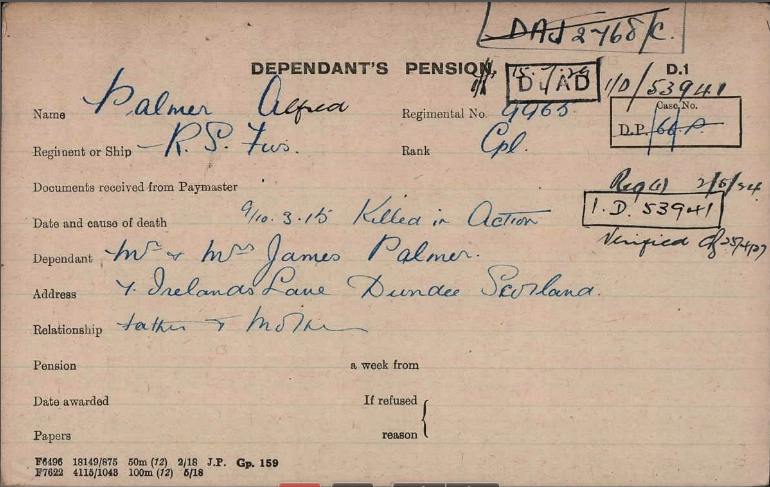 DAJ 2768/C.
DEPENDANT'S PENSION D.1
DJAD 1/D/53941
Name Palmer Alfred Regimental No. 9965. Case No.
D.P.
Regiment or Ship R. S. Fus. Rank Cpl.
Documents received from Paymaster
Date and cause of death 9/10.3.15 Killed in Action
I.D. 53941
Verified 25/4/27
Dependant Mr & Mrs James Palmer.
Address 7. Irelands Lane Dundee Scotland.
Relationship father & Mother
Pension a week from
Date awarded If refused
Papers reason
F6496 18149/875 50m (12) 2/18 J.P. Gp. 159
F7622 4115/1043 100m (12) 5/18